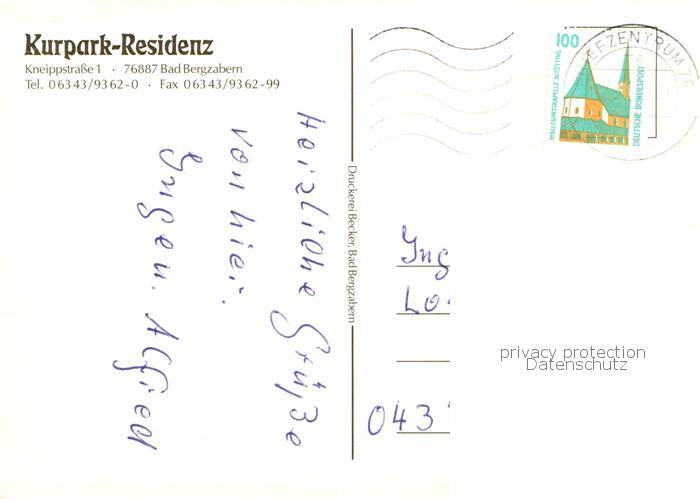 Kurpark-Residenz
Kneippstraße 1 · 76887 Bad Bergzabern
Tel. 0 63 43/93 62-0 · Fax 0 63 43/93 62-99
Herzliche Grüße
von hier.
Inge u. Alfred
Druckerei Becker, Bad Bergzabern
100
WALLFAHRTSKAPELLE ALTÖTTING
DEUTSCHE BUNDESPOST
IEFZENTRUM 76
Ing
Lo
043
privacy protection
Datenschutz